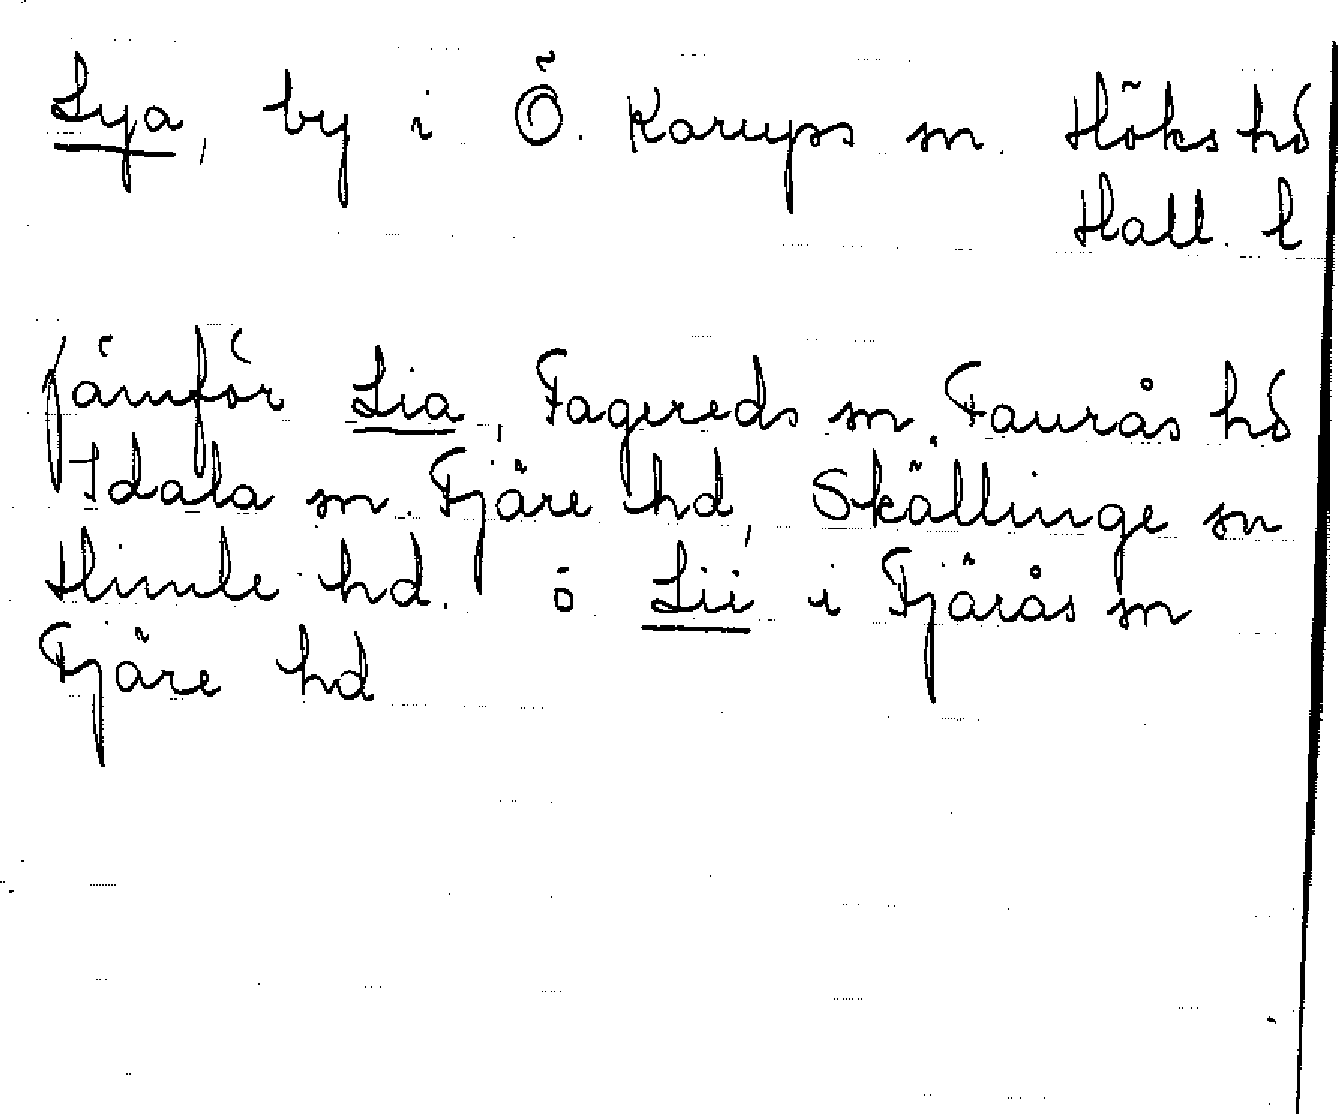 Lya, by i Ö. Karups sn. Höks hd
Hall. l
jämför Lia, Fagereds sn, Faurås hd
Idala sn. Fjäre hd, Skällinge sn
Himle hd. o Lii i Fjärås sn
Fjäre hd